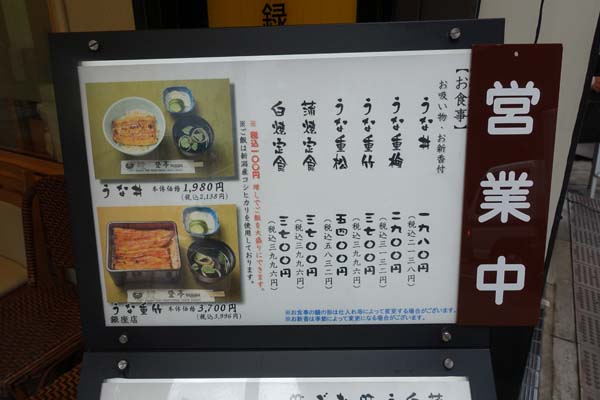 録
営業中
【お食事】
お吸い物・お新香付
うな丼 一九八〇円
(税込二一三八円)
うな重梅 二九〇〇円
(税込三一三二円)
うな重竹 三七〇〇円
(税込三九九六円)
うな重松 五四〇〇円
(税込五八三二円)
蒲焼定食 三七〇〇円
(税込三九九六円)
白焼定食 三七〇〇円
(税込三九九六円)
※税込一〇〇円増しでご飯を大盛りにできます。
※ご飯は新潟産コシヒカリを使用しております。
登亭
うな丼 本体価格 1,980円
(税込2,138円)
登亭
うな重竹 本体価格 3,700円
(税込3,996円)
銀座店
※お食事の鰻の形は仕入れ等によって変更する場合がございます。
※お新香は季節によって変更になる場合がございます。